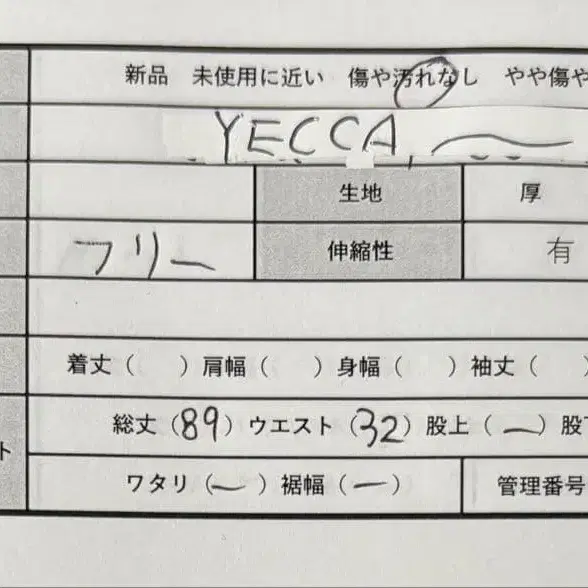 新品 未使用に近い 傷や汚れなし やや傷や
YECCA
生地 厚
フリー 伸縮性 有
着丈( ) 肩幅( ) 身幅( ) 袖丈( )
総丈(89) ウエスト(32) 股上(ー) 股下
ト
ワタリ(ー) 裾幅(ー) 管理番号